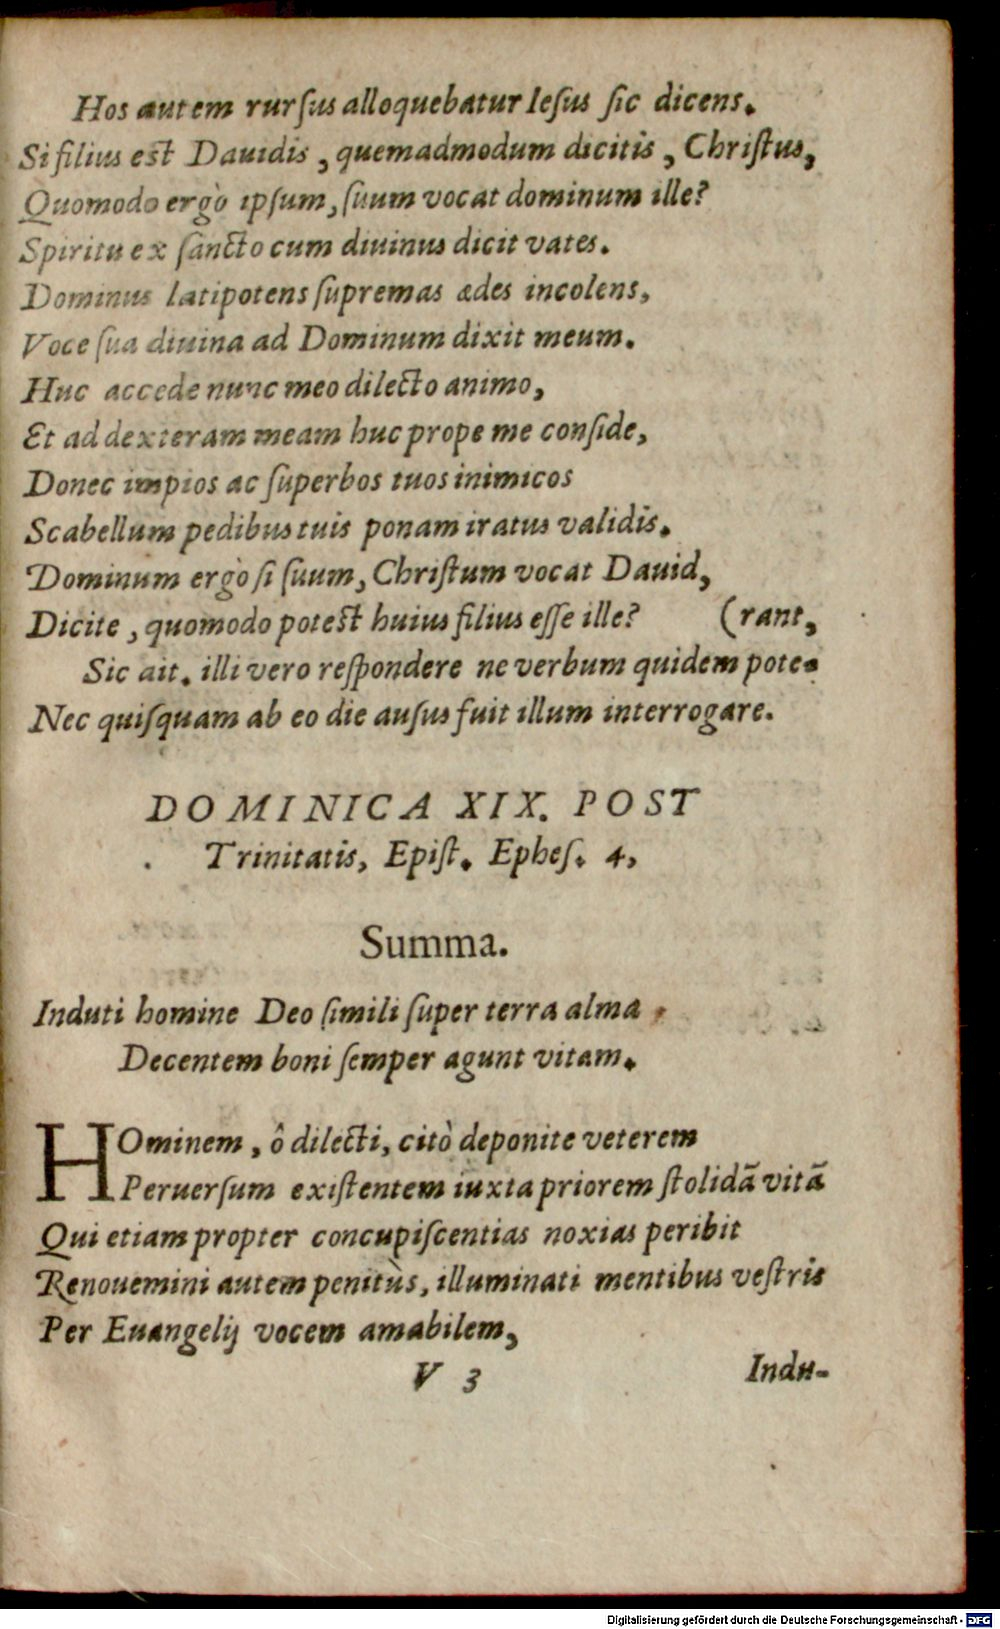 Hos autem rurſus alloquebatur Ieſus ſic dicens.
Si filius est Dauidis, quemadmodum dicitis, Chriſtus,
Quomodo ergò ipſum, ſuum vocat dominum ille?
Spiritu ex ſancto cum diuinus dicit vates.
Dominus latipotens ſupremas ædes incolens,
Voce ſua diuina ad Dominum dixit meum.
Huc accede nunc meo dilecto animo,
Et ad dexteram meam huc prope me conſide,
Donec impios ac ſuperbos tuos inimicos
Scabellum pedibus tuis ponam iratus validis.
Dominum ergò ſi ſuum, Chriſtum vocat Dauid,
Dicite, quomodo potest huius filius eſſe ille? (rant,
Sic ait. illi vero reſpondere ne verbum quidem pote-
Nec quiſquam ab eo die auſus fuit illum interrogare.
DOMINICA XIX. POST
Trinitatis, Epiſt. Epheſ. 4,
Summa.
Induti homine Deo ſimili ſuper terra alma
Decentem boni ſemper agunt vitam.
HOminem, ô dilecti, citò deponite veterem
Peruerſum exiſtentem iuxta priorem ſtolidã vitã
Qui etiam propter concupiſcentias noxias peribit
Renouemini autem penitùs, illuminati mentibus veſtris
Per Euangelij vocem amabilem,
V 3 Indu-
Digitalisierung gefördert durch die Deutsche Forschungsgemeinschaft - DFG